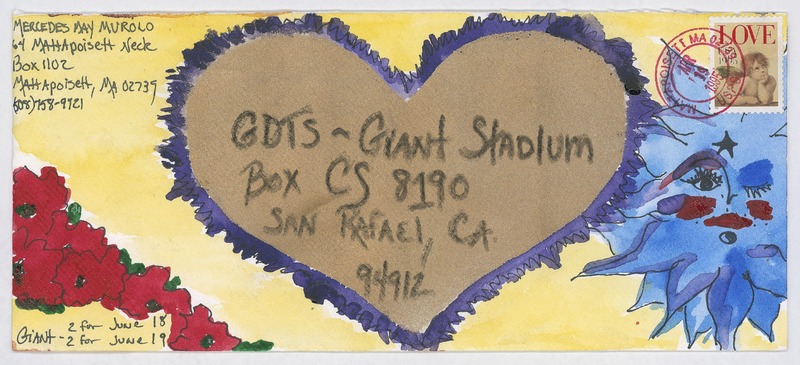 MERCEDES MAY MUROLO
64 MATTAPOISETT NECK
Box 1102
MATTAPOISETT, MA 02739
(508)758-9921
LOVE
MATTAPOISETT MA 02739
APR
1995
GDTS ~ GIANT STADIUM
BOX CS 8190
SAN RAFAEL, CA.
94912
2 for June 18
GIANT - 2 for June 19